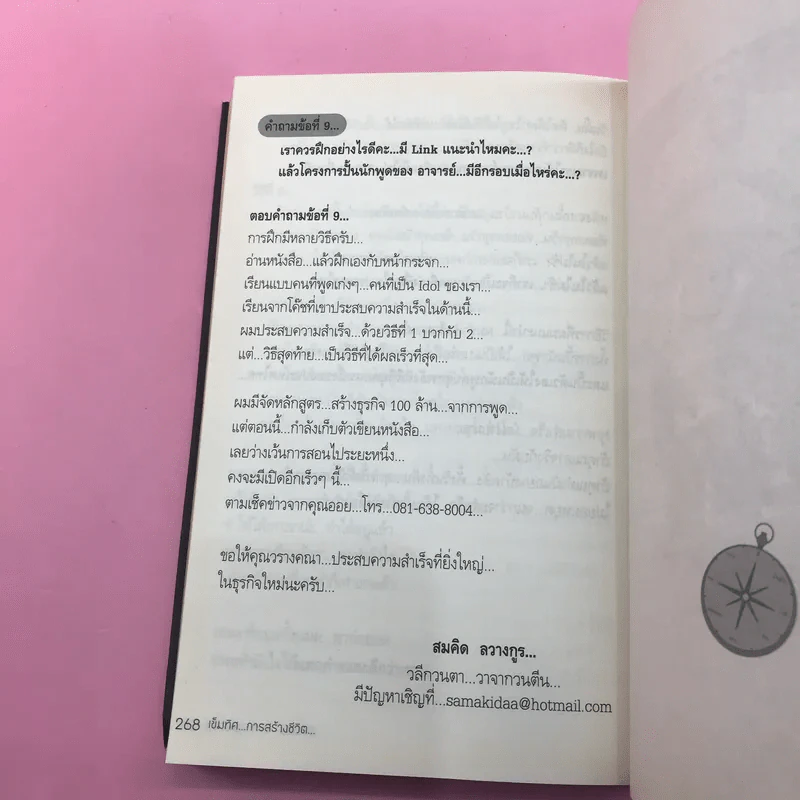 คำถามข้อที่ 9...
เราควรฝึกอย่างไรดีคะ...มี Link แนะนำไหมคะ...?
แล้วโครงการปั้นนักพูดของ อาจารย์...มีอีกรอบเมื่อไหร่คะ...?
ตอบคำถามข้อที่ 9...
การฝึกมีหลายวิธีครับ...
อ่านหนังสือ...แล้วฝึกเองกับหน้ากระจก...
เรียนแบบคนที่พูดเก่งๆ...คนที่เป็น Idol ของเรา...
เรียนจากโค๊ชที่เขาประสบความสำเร็จในด้านนี้...
ผมประสบความสำเร็จ...ด้วยวิธีที่ 1 บวกกับ 2...
แต่...วิธีสุดท้าย...เป็นวิธีที่ได้ผลเร็วที่สุด...
ผมมีจัดหลักสูตร...สร้างธุรกิจ 100 ล้าน...จากการพูด...
แต่ตอนนี้...กำลังเก็บตัวเขียนหนังสือ...
เลยว่างเว้นการสอนไประยะหนึ่ง...
คงจะมีเปิดอีกเร็วๆ นี้...
ตามเช็คข่าวจากคุณออย...โทร...081-638-8004...
ขอให้คุณวรางคณา...ประสบความสำเร็จที่ยิ่งใหญ่...
ในธุรกิจใหม่นะครับ...
สมคิด ลวางกูร...
วลีกวนตา...วาจากวนตีน...
มีปัญหาเชิญที่...samakidaa@hotmail.com
268 เข็มทิศ...การสร้างชีวิต...